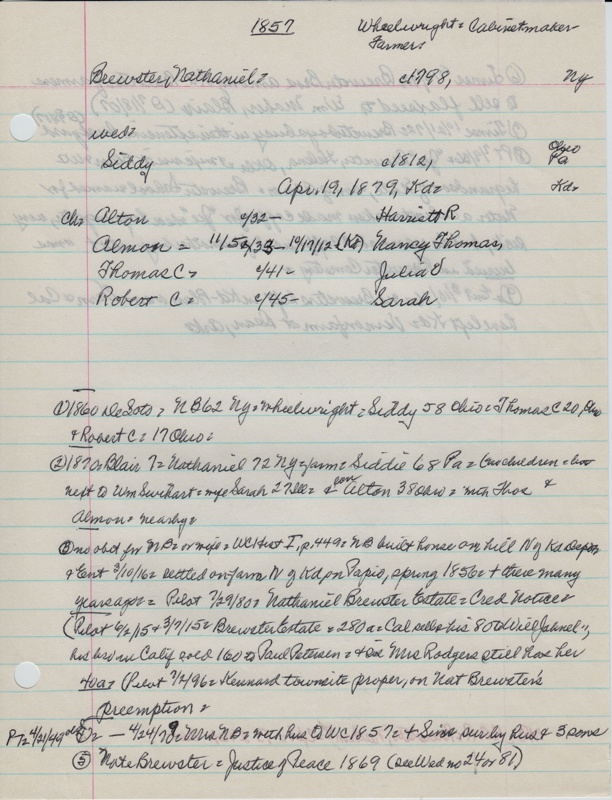 1857 Wheelwright = Cabinetmaker
Farmers
Brewster, Nathaniel = c1798, Ny
wed =
Siddy c1812, Ohio Pa
Apr. 19, 1879, Kd = Kd =
ch = Alton c/32 — Harriett R
Almon = 11/5 c/33 — 10/17/12 (Kd) Nancy Thomas,
Thomas C = c/41 — Julia
Robert C = c/45 — Sarah
① 1860 DeSoto = NB 62 Ny = wheelwright = Siddy 58 Ohio = Thomas C 20, Ohio
& Robert C = 17 Ohio =
② 1870 Blair 7 = Nathaniel 72 Ny = farm = Siddie 68 Pa = two children =
next to Wm Swihart = wife Sarah 27 Ill = & son Alton 38 Ohio = with Thos &
Almon = nearby =
③ no obit for NB = or wife = WC Hist I, p. 449 = NB built house on hill N of Kd Depot
& Ent 3/10/16 = settled on farm N of Kd, on Papio, spring 1856 = + there many
years ago = Pilot 7/29/80 = Nathaniel Brewster Estate = Cred Notice =
(Pilot 6/2/15 + 3/7/15 = Brewster Estate = 280 a = Cal sells his 80 to Will Jahnel =,
his bro in Calif sold 160 to Paul Petersen = + sis Mrs Rodgers still has her
40 a = (Pilot 7/4/96 = Kennard townsite proper, on Nat Brewster's
preemption =
PT = 4/21/49 ④ = — 4/24/79 = Mrs NB = with hus to WC 1857 = + Sur by hus & 3 sons
⑤ Nate Brewster = Justice of Peace 1869 (see Wed no 24 or 81)